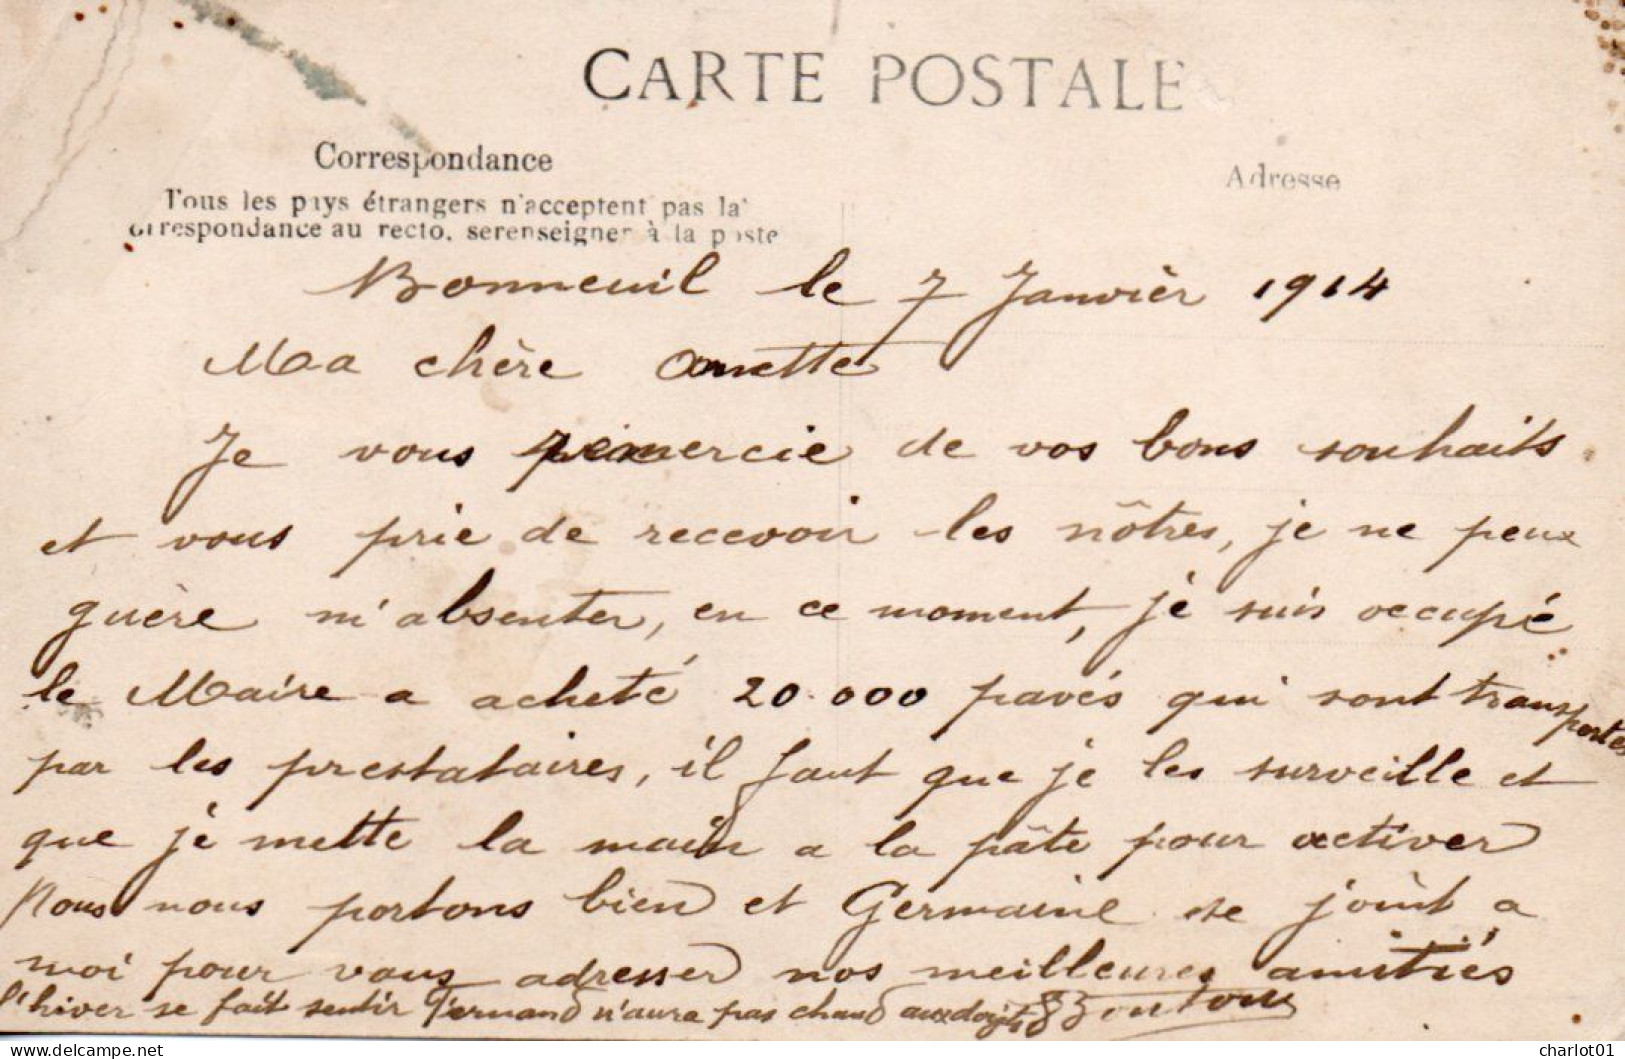 CARTE POSTALE
Correspondance
Adresse
Tous les pays étrangers n'acceptent pas la
correspondance au recto. serenseigner à la poste
Bonneuil le 7 Janvièr 1914
Ma chère Anette
Je vous remercie de vos bons souhaits
et vous prie de recevoir les nôtres, je ne peux
guère m'absenter, en ce moment, je suis occupé
le Maire a acheté 20.000 pavés qui sont transportés
par les prestataires, il faut que je les surveille et
que je mette la main a la pâte pour activer
Nous nous portons bien et Germaine se joint a
moi pour vous adresser nos meilleures amitiés
l'hiver se fait sentir Fernand n'aura pas chaud aux doigts
delcampe.net
charlot01